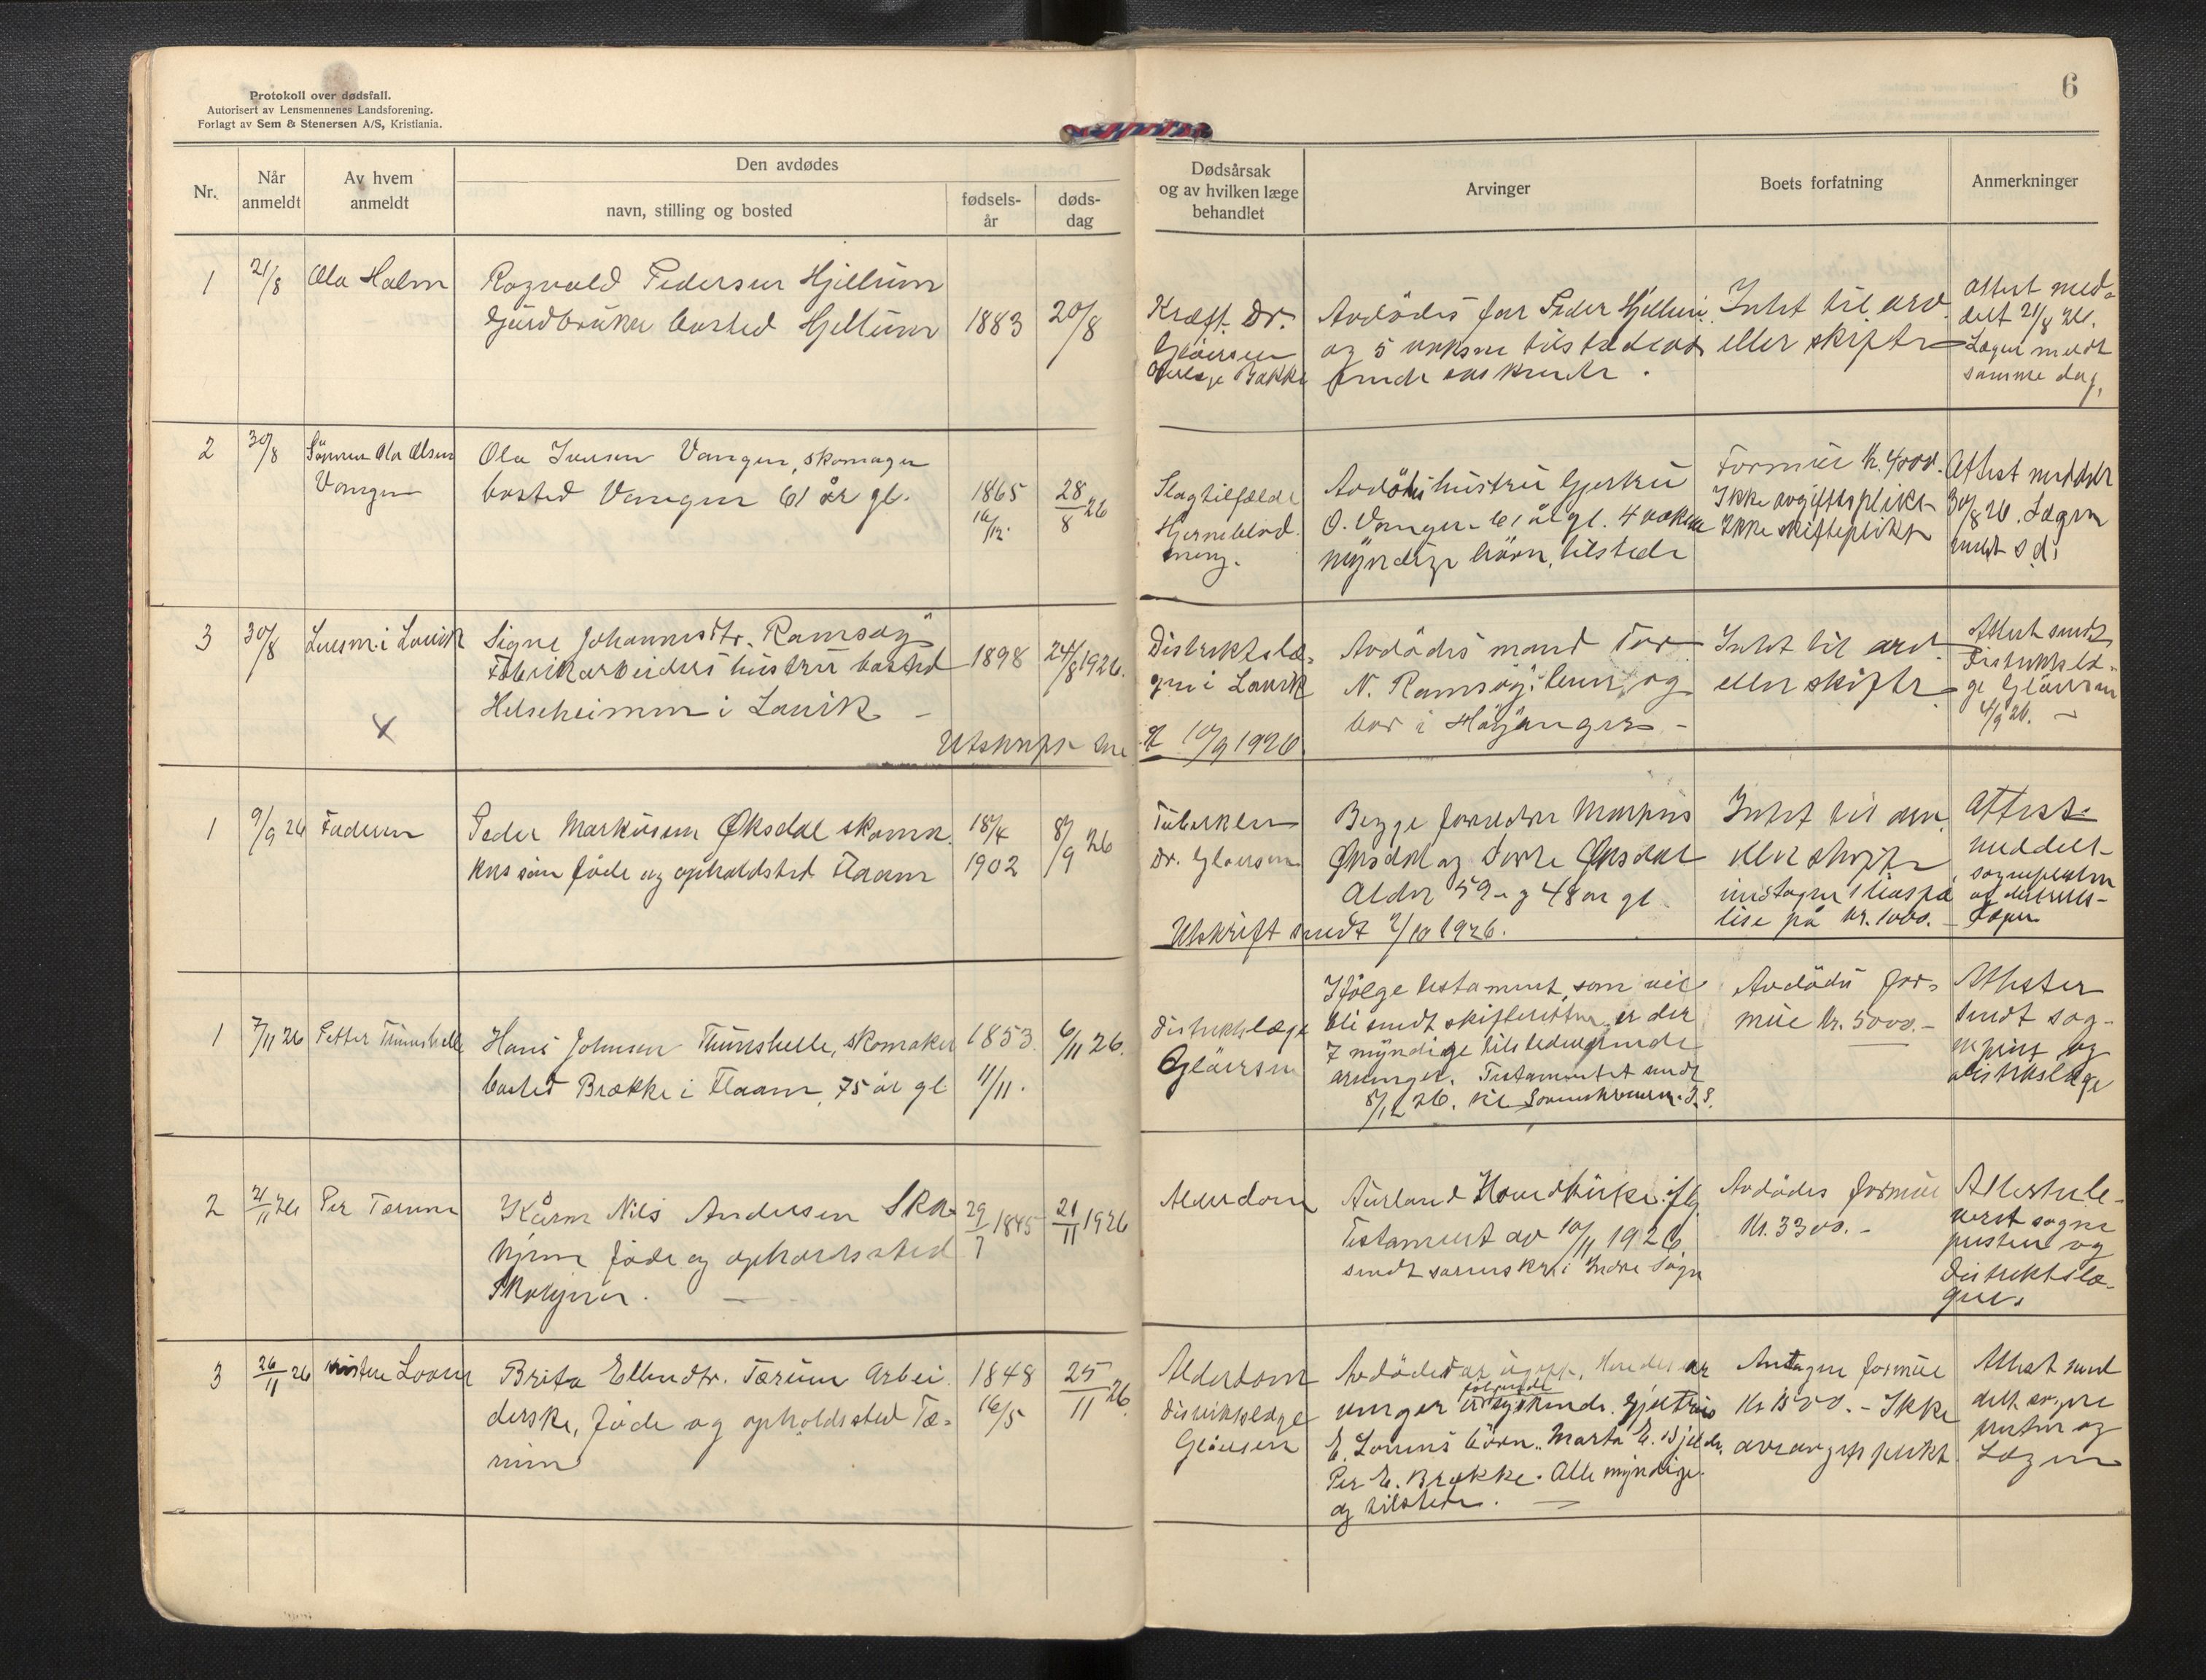 Protokoll over dødsfall.
Autorisert av Lensmennenes Landsforening.
Forlagt av Sem & Stenersen A/S, Kristiania.
6
Nr.
Når anmeldt
Av hvem anmeldt
Den avdødes
navn, stilling og bosted
fødsels-år
døds-dag
Dødsårsak og av hvilken læge behandlet
Arvinger
Boets forfatning
Anmerkninger
1
21/8
Ola Holm
Ragvald Pedersen Hjellum
Gårdbruker bosted Hjellum
1883
20/8
Kræft. Dr.
Gløersen
Avdødes far Peder Hjellum
og 5 voksne tilstedevær
Intet til arv
eller skifte
Attest med-
delt 21/8 26.
Lægen meldt
samme dag.
2
30/8
Sönnen Ola Olsen
Vangen
Ola Iversen Vangen, skomager
bosted Vangen 61 år gl.
1865
16/12.
28/8 26
Slagtilfælde
Hjerneblød-
ning.
Avdödes hustru Gjertru
O. Vangen 61 år gl. 4 voksne
myndige börn, tilstede
Formue kr. 4000.
Ikke avgiftsplikt
Ikke skifteplikt
Attest meddelt
30/8 26. Lægen
meldt s.d.
3
30/8
Lensm. i Lavik
Signe Johannesdtr. Ramsøy
Fabrikarbeiders hustru bosted
Helleheimen i Lavik
1898
24/8 1926.
Utskrift sen
dt 10/9 1926.
Distriktslæ-
gen i Lavik
Avdödes mand Tor
N. Ramsöy, og
bor i Höyanger
Intet til arv
eller skifte
Attest sendt
Distriktslæ-
ge Gløersen
4/9 26.
1
9/9 26
Faderen
Peder Markusen Øksdal skoma-
kers søn føde og opholdssted Flaam
18/4
1902
8/9 26
Tuberkler
Dr. Gløersen
Begge foreldre Markus
Øksdal og Øksdal
Alder 59 og 48 år gl.
Utskrift sendt 2/10 1926.
Intet til arv
eller skifte
på kr. 1000.
Attest
meddelt
sogneprest
1
7/11 26
Petter Tunshelle
Hans Johnsen Tunshelle, skomaker
bosted Brække i Flaam, 75 år gl
1853
11/11.
6/11 26.
Distriktslæge
Gløersen
Ifølge testament, som vil
bli sendt skifteretten er der
7 myndige tilstedeværende
arvinger. Testamentet sendt
8/12 26. til Sorenskriveren I.S.
Avdödes for-
mue kr. 5000.
Attester
sendt sog-
neprest og
distriktslæge
2
21/11 26
Per Tærum
Kårm. Nils Andersen Ska-
hjem føde og opholdssted
Skahjem.
29/7 1845
21/11 1926
Alderdom
Aurland Homekirke iflg.
Testament av 10/11 1926
sendt sorenskr. i Indre Sogn
Avdødes formue
kr. 3300.
Attest le-
vert sogne
presten og
Distriktslæ-
gen.
3
26/11 26
Loven
Brita Ellendtr. Tærum Arbei
derske, føde og opholdssted Tæ-
rum
1848
16/5
25/11 26.
Alderdom
Distriktslæge
Gløersen
Avdöde var ugift. Hendes ar
vinger er følgende syskende. Gjertrud
E. Lovens børn. Marta E. Bjelde.
Per E. Brekke. Alle myndige
og tilstede.
Antagen formue
kr 1500. - Ikke
arveavgift pliktig
Attest med
delt sogne
presten og
Lægen